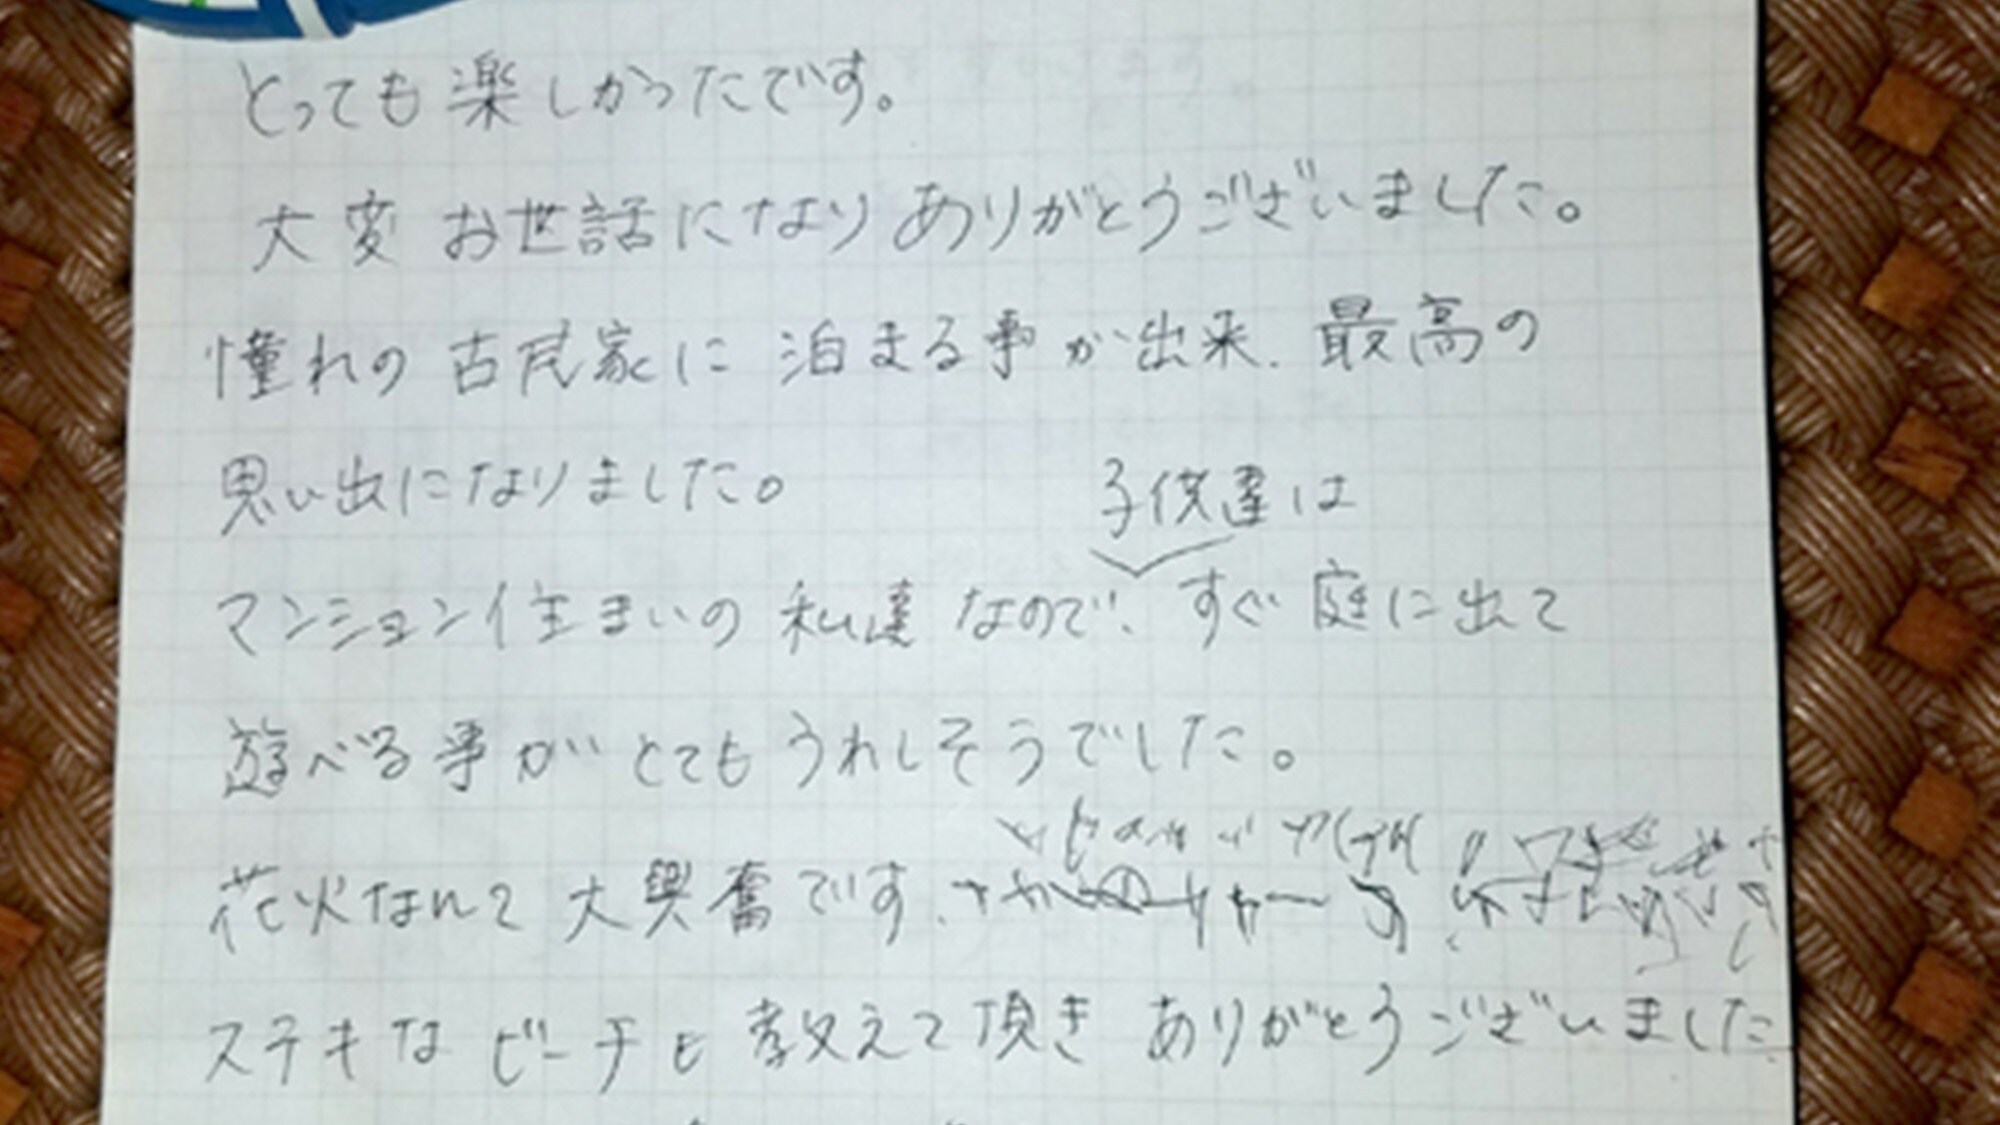 とっても楽しかったです。
大変お世話になりありがとうございました。
憧れの古民家に泊まる事が出来、最高の
思い出になりました。
子供達は
マンション住まいの私達なので、すぐ庭に出て
遊べる事がとてもうれしそうでした。
花火なんて大興奮です。
ステキなビーチも教えて頂きありがとうございました